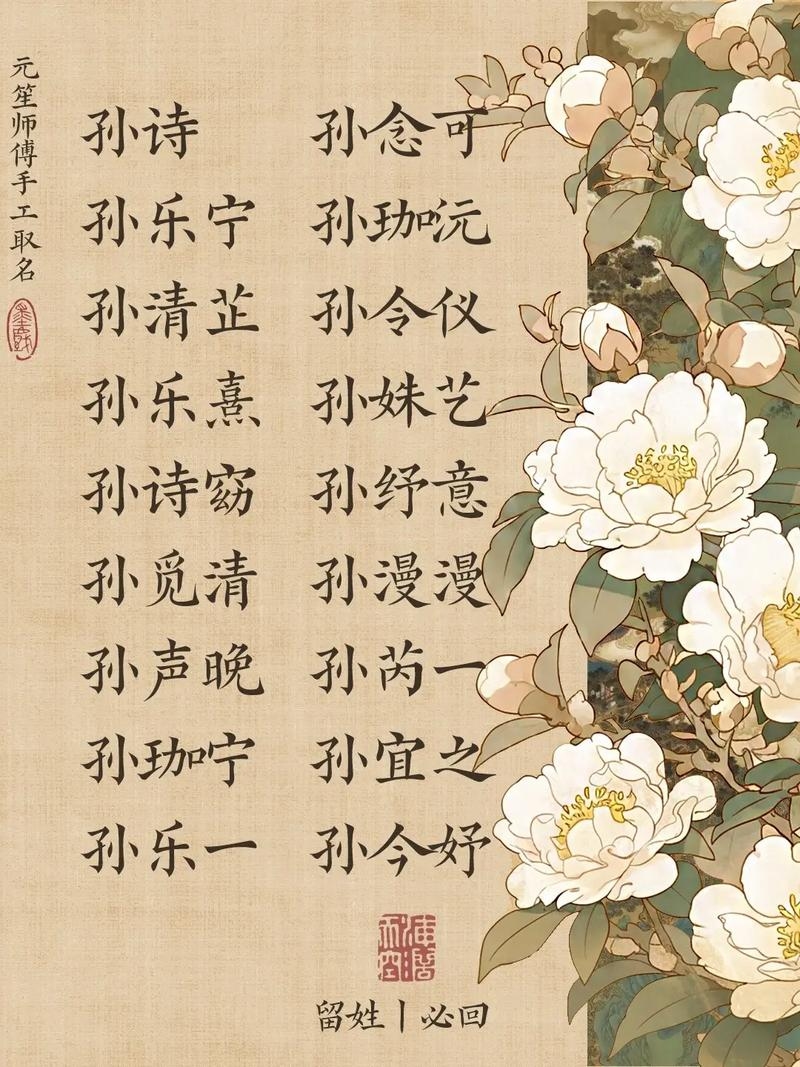 元笙师傅手工取名
孙诗
孙乐宁
孙清芷
孙乐熹
孙诗窈
孙觅清
孙声晚
孙珈宁
孙乐一
孙念可
孙珈沅
孙令仪
孙姝艺
孙纾意
孙漫漫
孙芮一
孙宜之
孙今妤
留姓丨必回